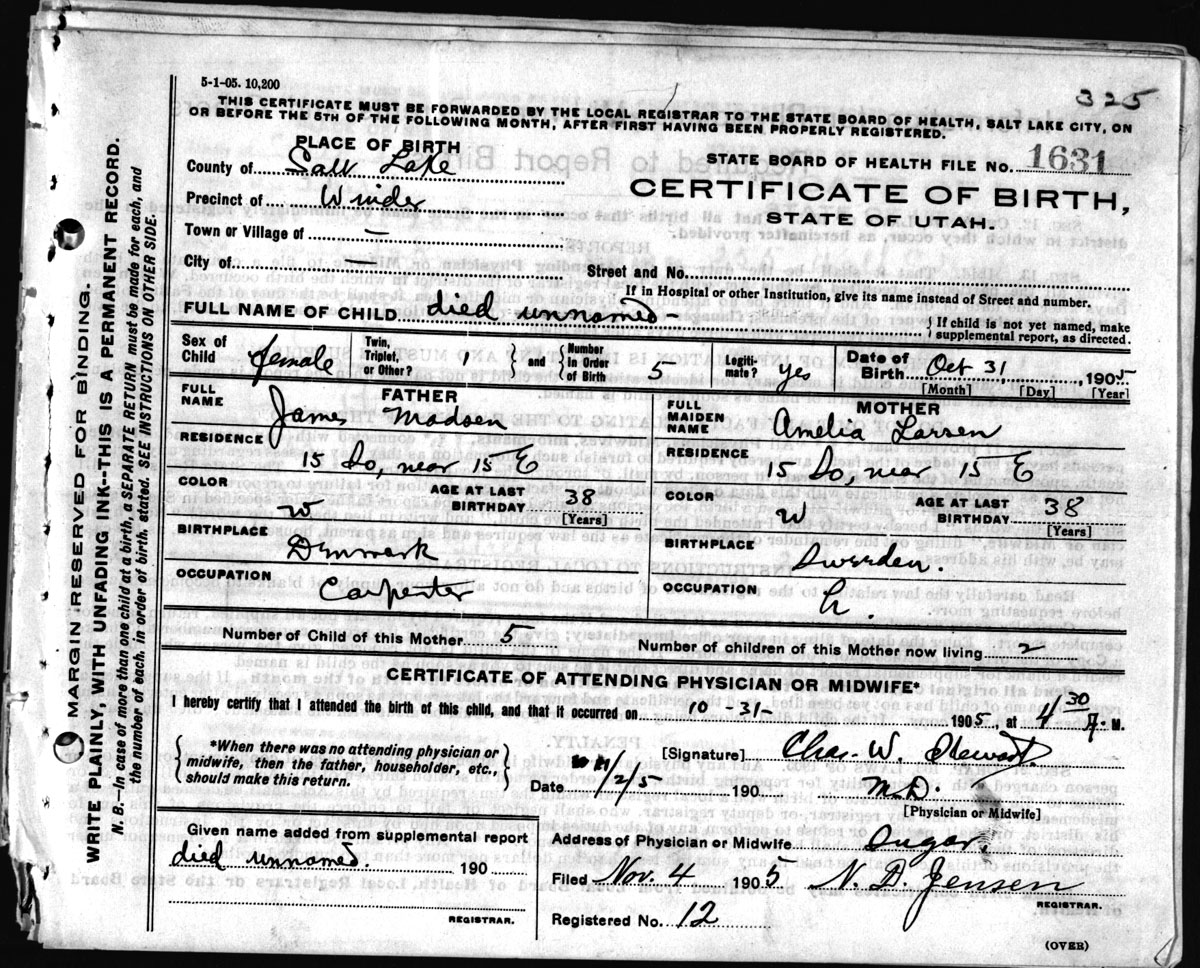 5-1-05. 10,200
325
THIS CERTIFICATE MUST BE FORWARDED BY THE LOCAL REGISTRAR TO THE STATE BOARD OF HEALTH, SALT LAKE CITY, ON
OR BEFORE THE 5TH OF THE FOLLOWING MONTH, AFTER FIRST HAVING BEEN PROPERLY REGISTERED.
PLACE OF BIRTH
County of Salt Lake
Precinct of Winder
Town or Village of —
City of —
STATE BOARD OF HEALTH FILE No. 1631
CERTIFICATE OF BIRTH,
STATE OF UTAH.
Street and No.
If in Hospital or other Institution, give its name instead of Street and number.
FULL NAME OF CHILD died unnamed -
{ If child is not yet named, make
supplemental report, as directed.
Sex of Child female
Twin, Triplet, or Other? 1
and { Number in Order of Birth 5
Legitimate? yes
Date of Birth Oct 31, 1905
[Month] [Day] [Year]
FATHER
FULL NAME James Madsen
RESIDENCE
15 So, near 15 E
COLOR W
AGE AT LAST BIRTHDAY 38
[Years]
BIRTHPLACE
Denmark
OCCUPATION
Carpenter
MOTHER
FULL MAIDEN NAME Amelia Larsen
RESIDENCE
15 So, near 15 E
COLOR W
AGE AT LAST BIRTHDAY 38
[Years]
BIRTHPLACE
Sweden
OCCUPATION
h.
Number of Child of this Mother 5
Number of children of this Mother now living 2
CERTIFICATE OF ATTENDING PHYSICIAN OR MIDWIFE*
I hereby certify that I attended the birth of this child, and that it occurred on 10-31- 1905, at 4 30 A. M.
{ *When there was no attending physician or
midwife, then the father, householder, etc.,
should make this return. }
[Signature] Chas. W. Stewart
M.D.
[Physician or Midwife]
Date 11/2/5 190
Given name added from supplemental report
died unnamed. 190
REGISTRAR.
Address of Physician or Midwife Sugar
Filed Nov. 4 1905 N. D. Jensen
REGISTRAR.
Registered No. 12
(OVER)
MARGIN RESERVED FOR BINDING.
WRITE PLAINLY, WITH UNFADING INK--THIS IS A PERMANENT RECORD.
N. B.—In case of more than one child at a birth, a SEPARATE RETURN must be made for each, and
the number of each, in order of birth, stated. SEE INSTRUCTIONS ON OTHER SIDE.